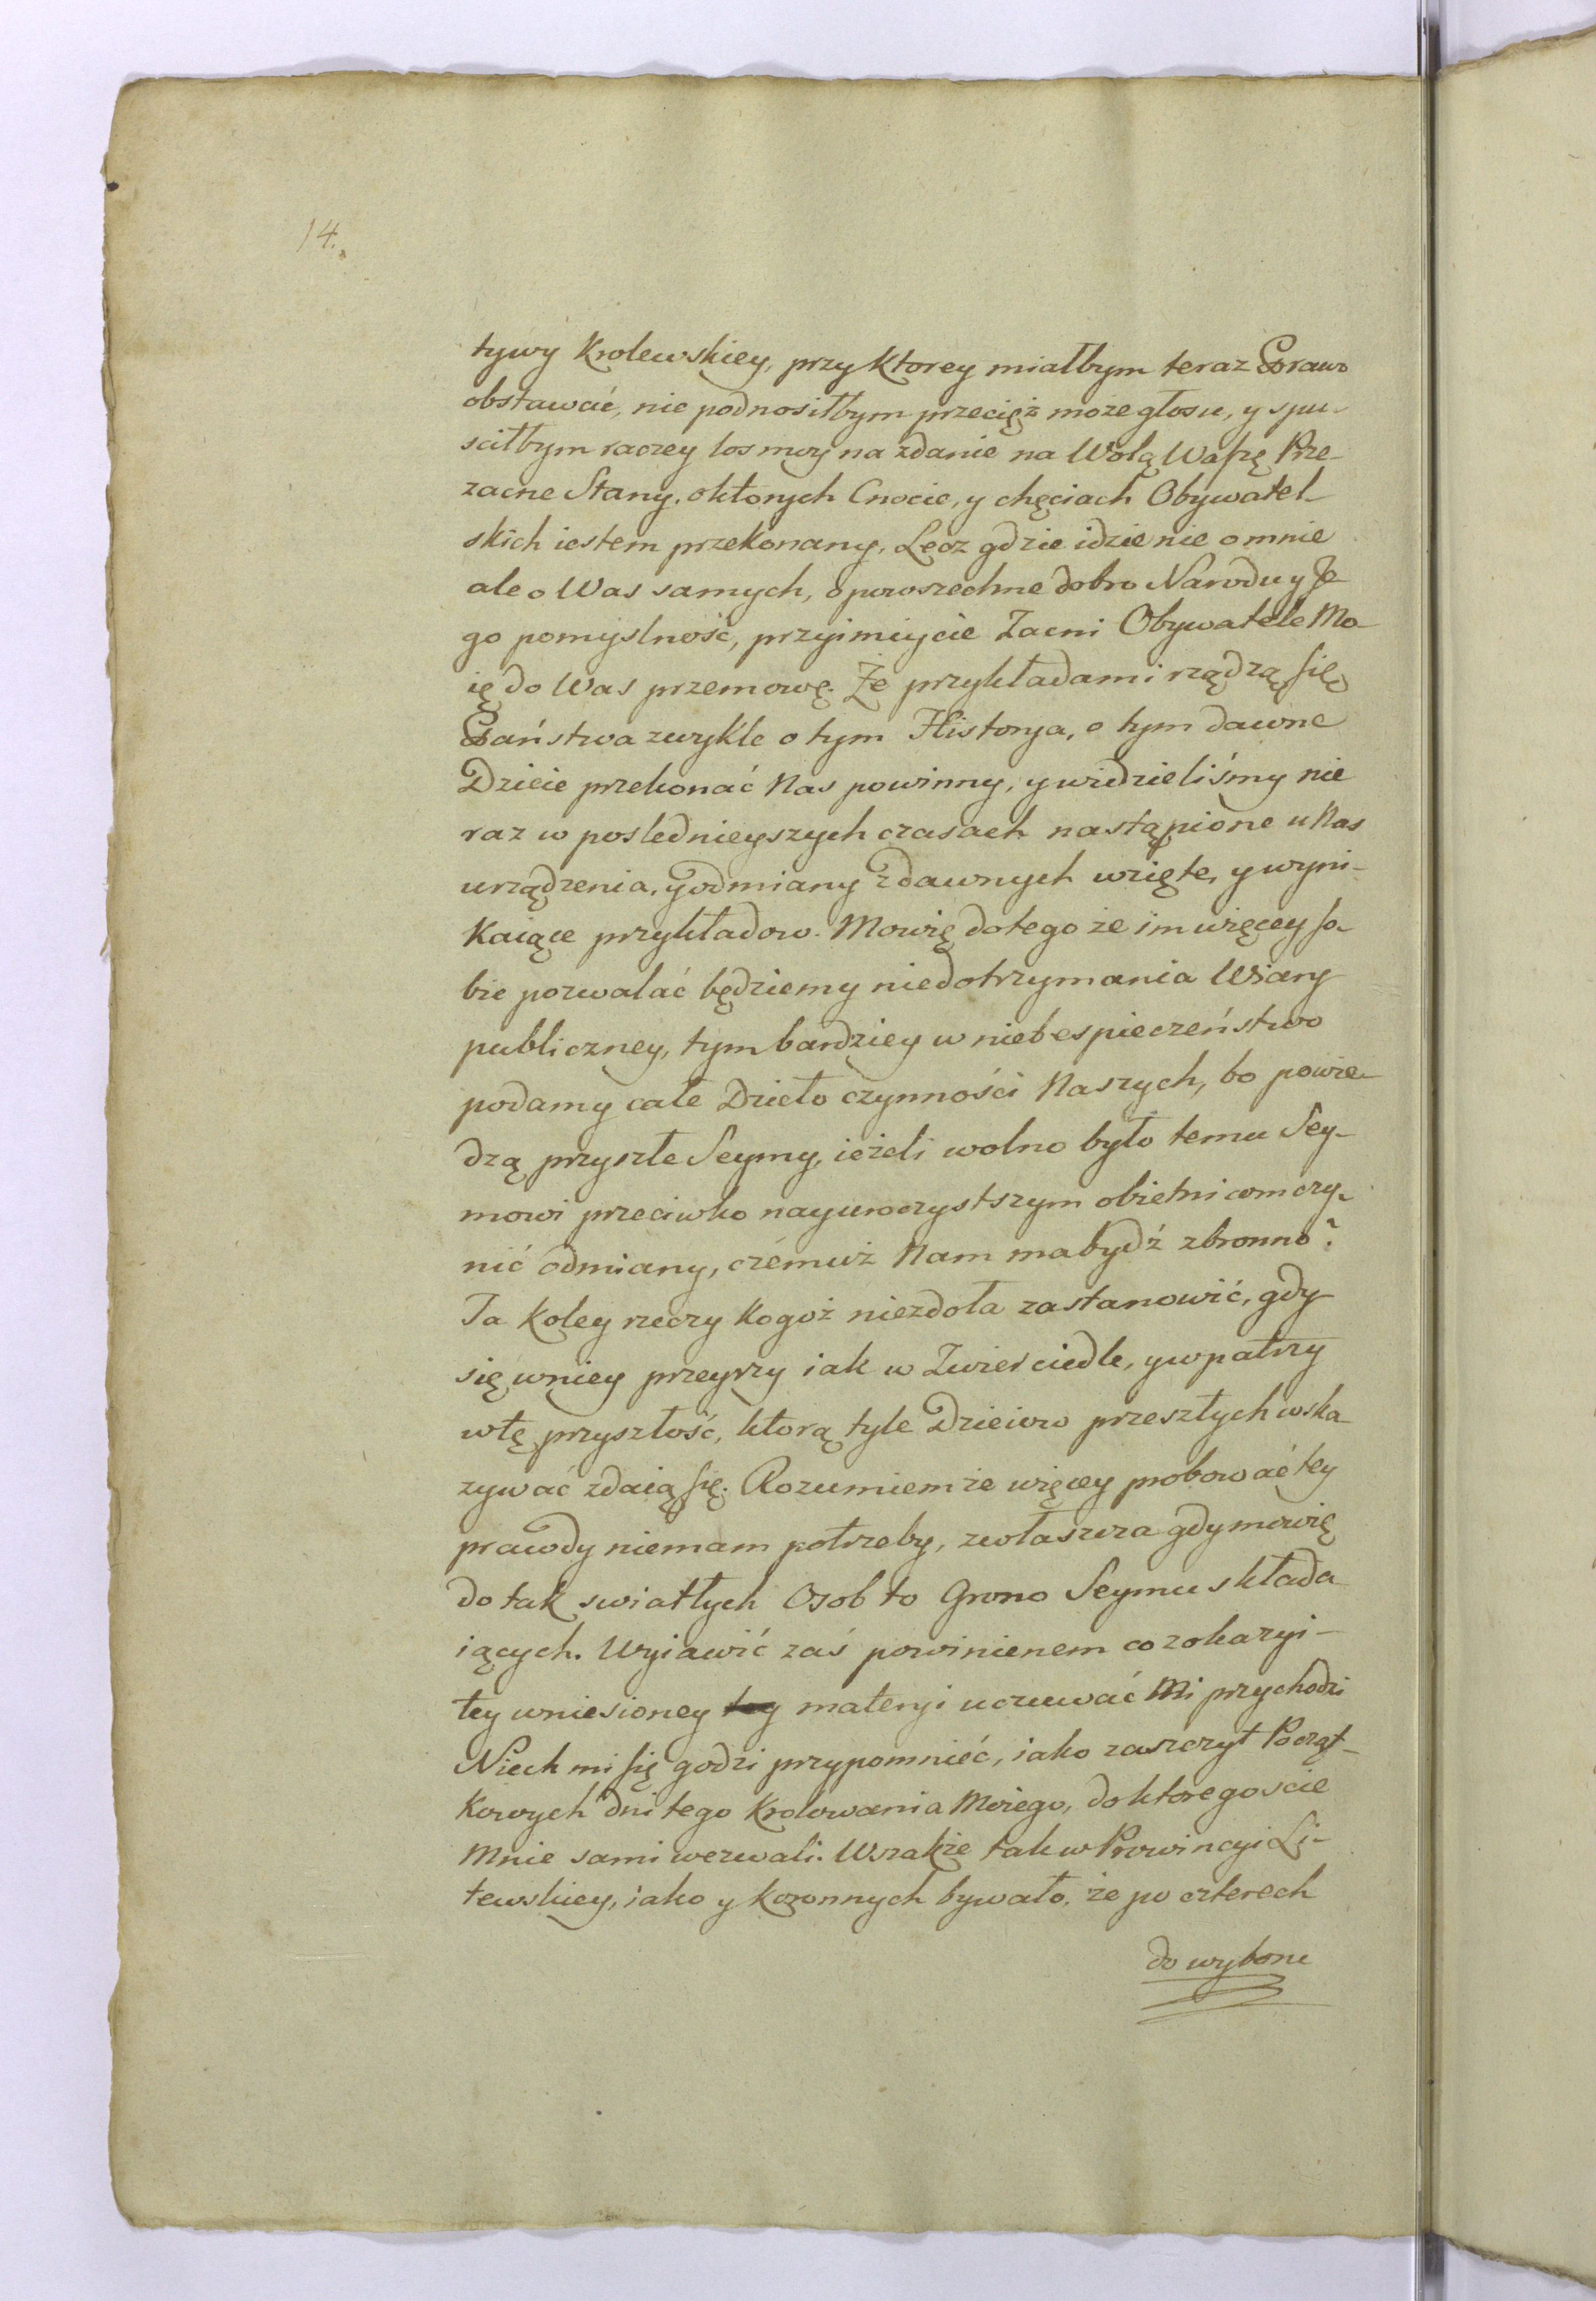 14.
tywy Krolewskiey, przy ktorey miałbym teraz Prawo
obstawać, nie podnosiłbym przecięż może głosu, y spu-
sciłbym raczey los moy na zdanie na Wolą Waszę Prze
zacne Stany, o ktorych Cnocie, y chęciach Obywatel-
skich iestem przekonany, Lecz gdzie idzie nie o mnie
ale o Was samych, o powszechne dobro Narodu y Je-
go pomyslność, przyimiycie Zacni Obywatele Mo-
ię do Was przemowę. Że przykładami rządzą się
Państwa zwykle o tym Historya, o tym dawne
Dzieie przekonać Nas powinny, y widzieliśmy nie
raz w poslednieyszych czasach nastąpione u Nas
urządzenia, y odmiany z dawnych wzięte, y wyni-
kaiące przykładow. Mowię do tego że im więcey so-
bie pozwalać będziemy niedotrzymania Wiary
publiczney, tym bardziey w niebespieczeństwo
podamy całe Dzieło czynności Naszych, bo powie-
dzą przyszłe Seymy, ieżeli wolno było temu Sey-
mowi przeciwko nayuroczystszym obietnicom czy-
nić odmiany, czémuż Nam ma bydź zbronno?
Ta koley rzeczy kogoż niezdoła zastanowić, gdy
się w niey przeyrzy iak w Zwierciedle, y wpatrzy
w tę przyszłość, ktorą tyle Dzieiow przeszłych wska
zywać zdaią się. Rozumiem że więcey probować tey
prawdy niemam potrzeby, zwłaszcza gdy mowię
do tak swiatłych Osob to Grono Seymu składa
iących. Wyiawić zaś powinienem co z okazyi-
tey wniesioney tey materyi uczuwać Mi przychodzi
Niech mi się godzi przypomnieć, iako zaszczyt Począt-
kowych dni tego Krolowania Moiego, do ktoregoscie
Mnie sami wezwali. Wszakże tak w Prowincyi Li-
tewskiey, iako y Koronnych bywało, że po czterech
do wyboru